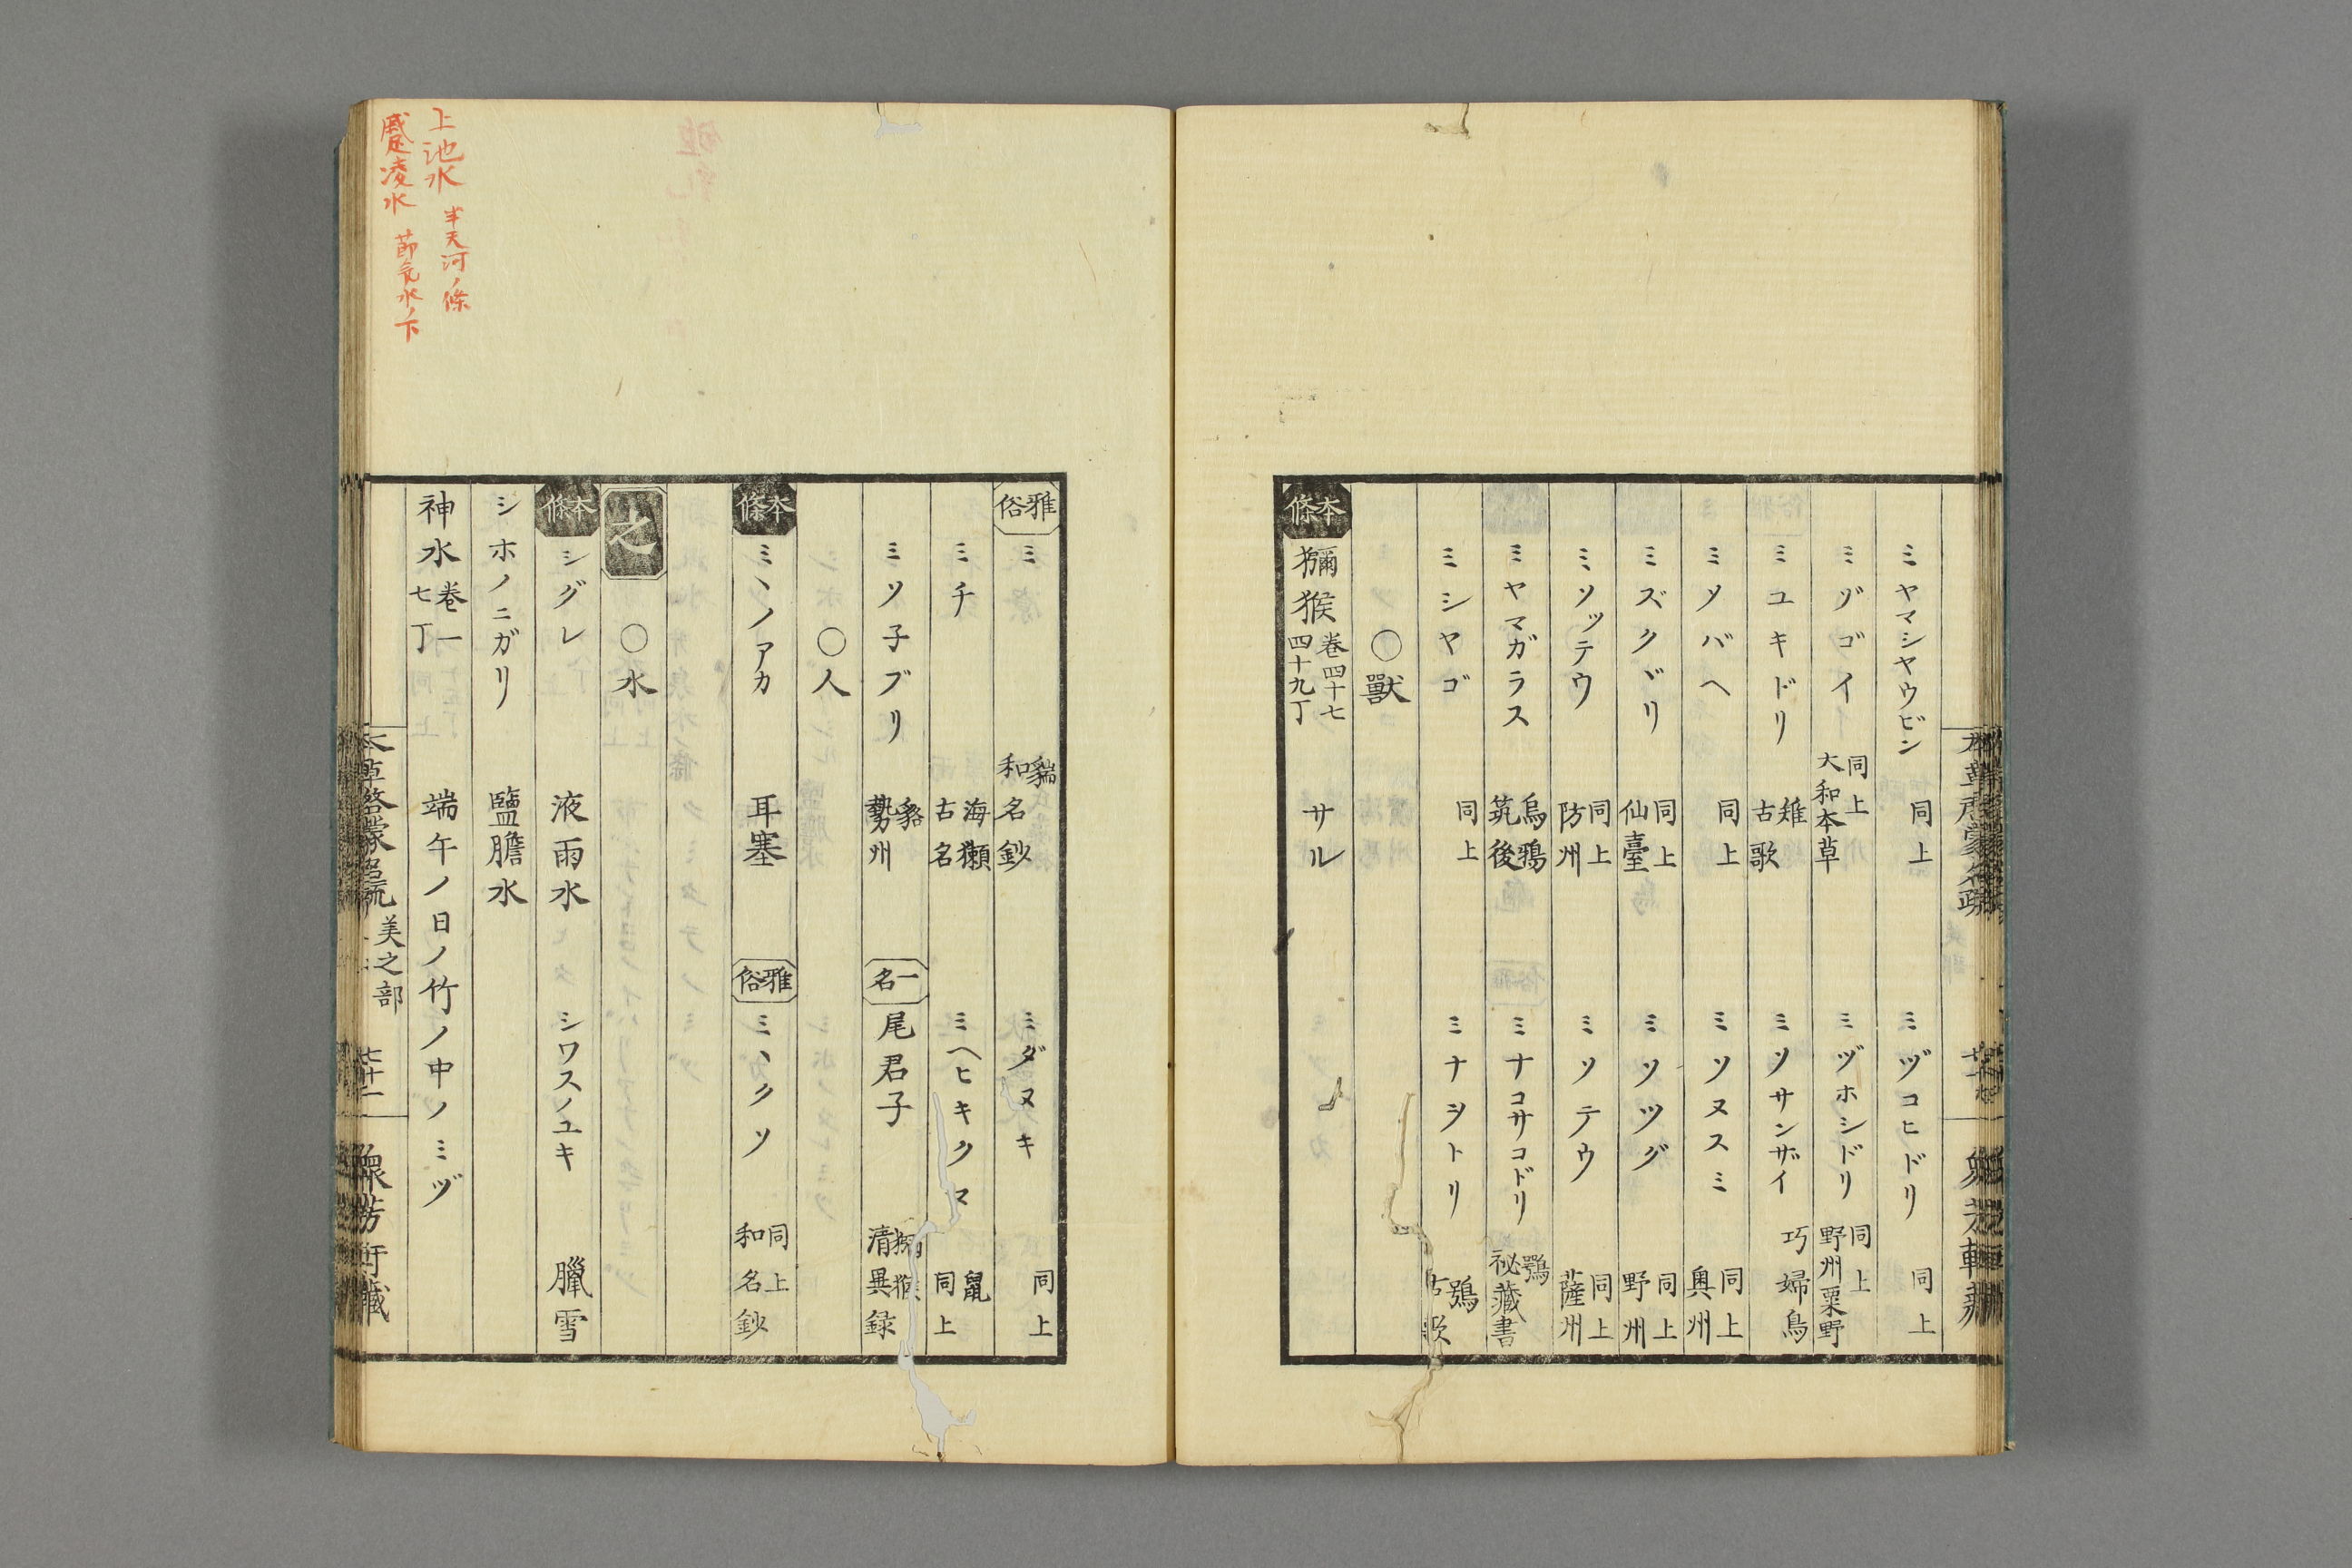 ミヤマシヤウビン 同上 ミヅコヒドリ 同上
ミゾゴイ 同上 大和本草 ミヅホシドリ 同上 野州粟野
ミユキドリ 雉 古歌 ミソサンザイ 巧婦鳥
ミソバヘ 同上 ミソヌスミ 同上 奥州
ミズクヾリ 同上 仙臺 ミソツグ 同上 野州
ミソッテウ 同上 防州 ミソテウ 同上 薩州
ミヤマガラス 烏鴉 筑後 ミナコサコドリ 鶚 祕藏書
ミシヤゴ 同上 ミナヲトリ 鴉 古歌
〇獸
本條 獼猴 卷四十七 四十九丁 サル
雅俗 ミ 貒 和名鈔 ミダヌキ 同上
ミチ 海獺 古名 ミヘヒキクマ 鼠 同上
ミソ子ブリ 貉 勢州 一名 尾君子 獼猴 清異録
〇人
本條 ミヽノアカ 耳塞 雅俗 ミヽクソ 同上 和名鈔
之 〇水
本條 シグレ 液雨水 シワスノユキ 臘雪
シホノニガリ 鹽膽水
神水 卷一 七丁 端午ノ日ノ竹ノ中ノミヅ
本草啓蒙名疏 美之部 七十二
上池水 半天河ノ條
蹙凌水 節気水ノ下